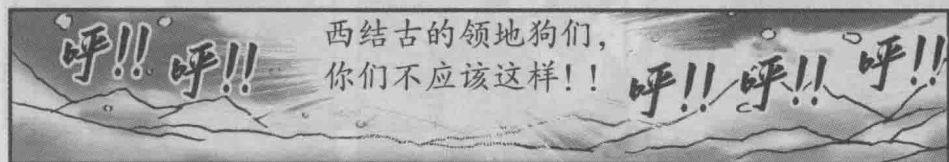 呼!!
呼!!
西结古的领地狗们，
你们不应该这样！！
呼!!
呼!!
呼!!